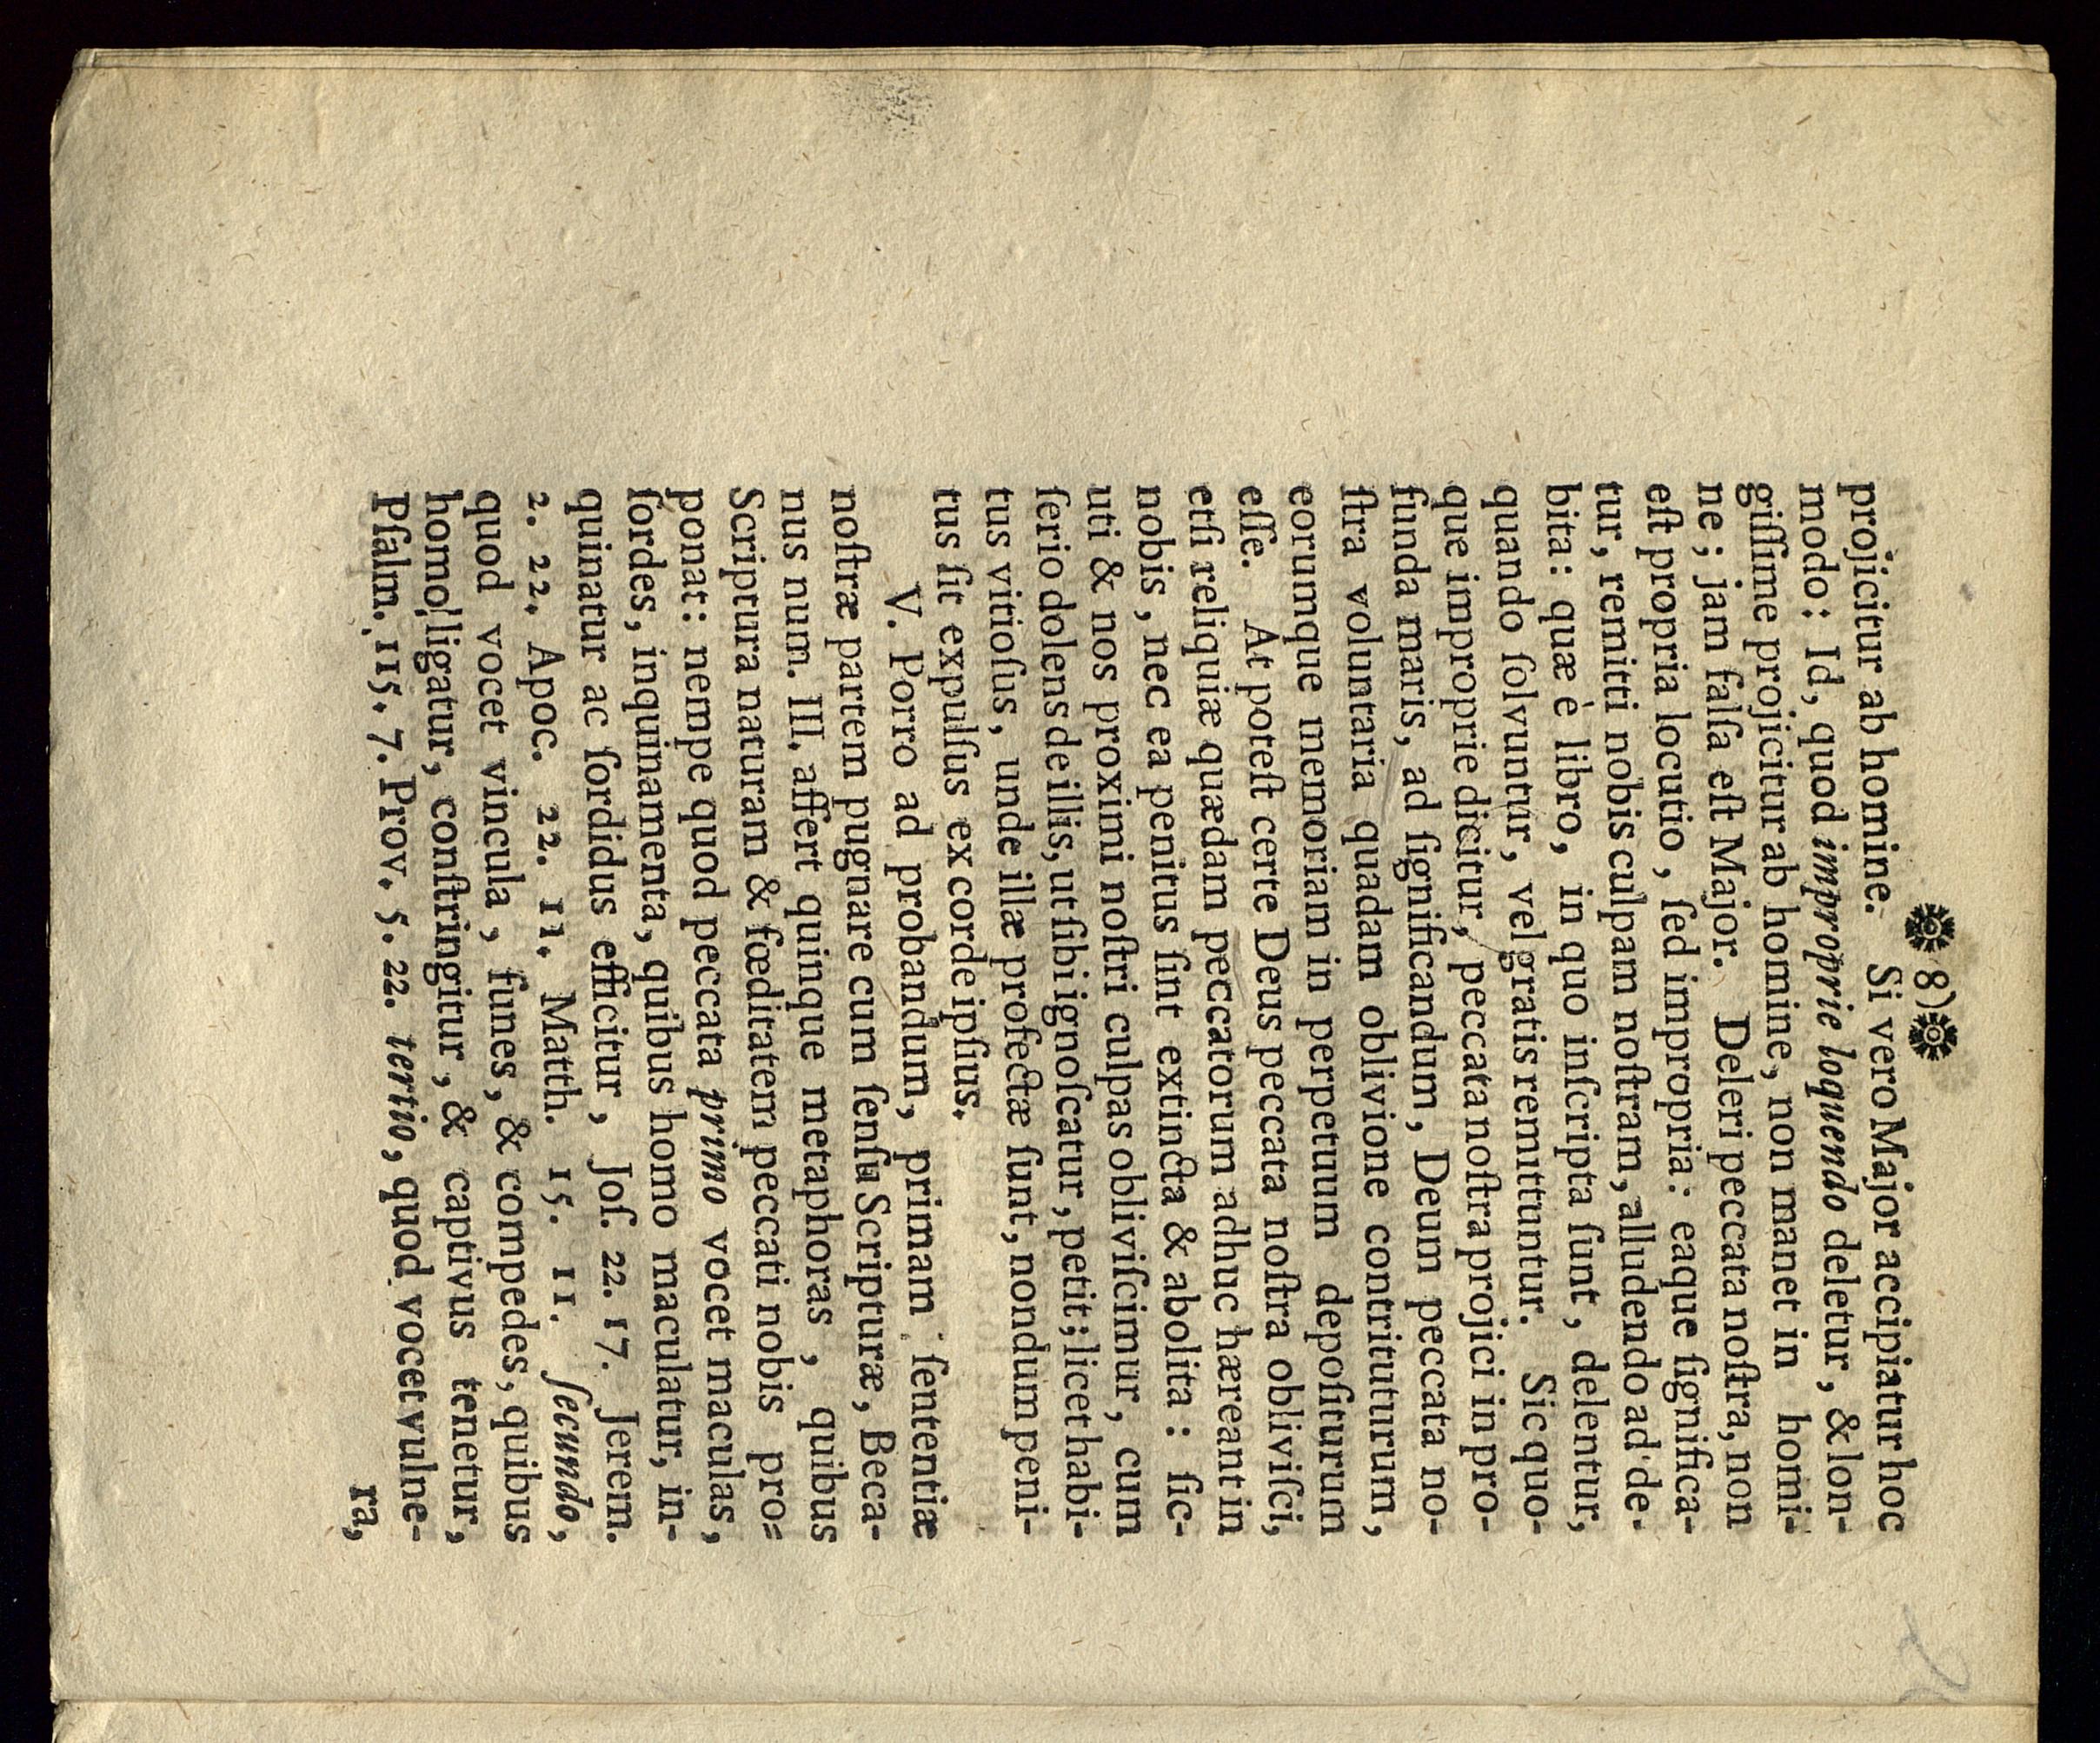 ❋ 8)❋
projicitur ab homine. Si vero Major accipiatur hoc
modo: Id, quod improprie loquendo deletur, & lon-
giſſime projicitur ab homine, non manet in homi-
ne; jam falſa eſt Major. Deleri peccata noſtra, non
eſt propria locutio, ſed impropria: eaque ſignifica-
tur, remitti nobis culpam noſtram, alludendo ad de-
bita: quæ è libro, in quo inſcripta ſunt, delentur,
quando ſolvuntur, vel gratis remittuntur. Sic quo-
que improprie dicitur, peccata noſtra projici in pro-
funda maris, ad ſignificandum, Deum peccata no-
ſtra voluntaria quadam oblivione contrituturum,
eorumque memoriam in perpetuum depoſiturum
eſſe. At poteſt certe Deus peccata noſtra obliviſci,
etſi reliquiæ quædam peccatorum adhuc hæreant in
nobis, nec ea penitus ſint extincta & abolita: ſic-
uti & nos proximi noſtri culpas obliviſcimur, cum
ſerio dolens de illis, ut ſibi ignoſcatur, petit; licet habi-
tus vitioſus, unde illæ profectæ ſunt, nondum peni-
tus ſit expulſus ex corde ipſius.
V. Porro ad probandum, primam ſententiæ
noſtræ partem pugnare cum ſenſu Scripturæ, Beca-
nus num. III. affert quinque metaphoras, quibus
Scriptura naturam & fœditatem peccati nobis pro=
ponat: nempe quod peccata primo vocet maculas,
ſordes, inquinamenta, quibus homo maculatur, in-
quinatur ac ſordidus efficitur, Joſ. 22. 17. Jerem.
2. 22. Apoc. 22. 11. Matth. 15. 11. ſecundo,
quod vocet vincula, funes, & compedes, quibus
homo ligatur, conſtringitur, & captivus tenetur,
Pſalm. 115. 7. Prov. 5. 22. tertio, quod vocet vulne-
ra,